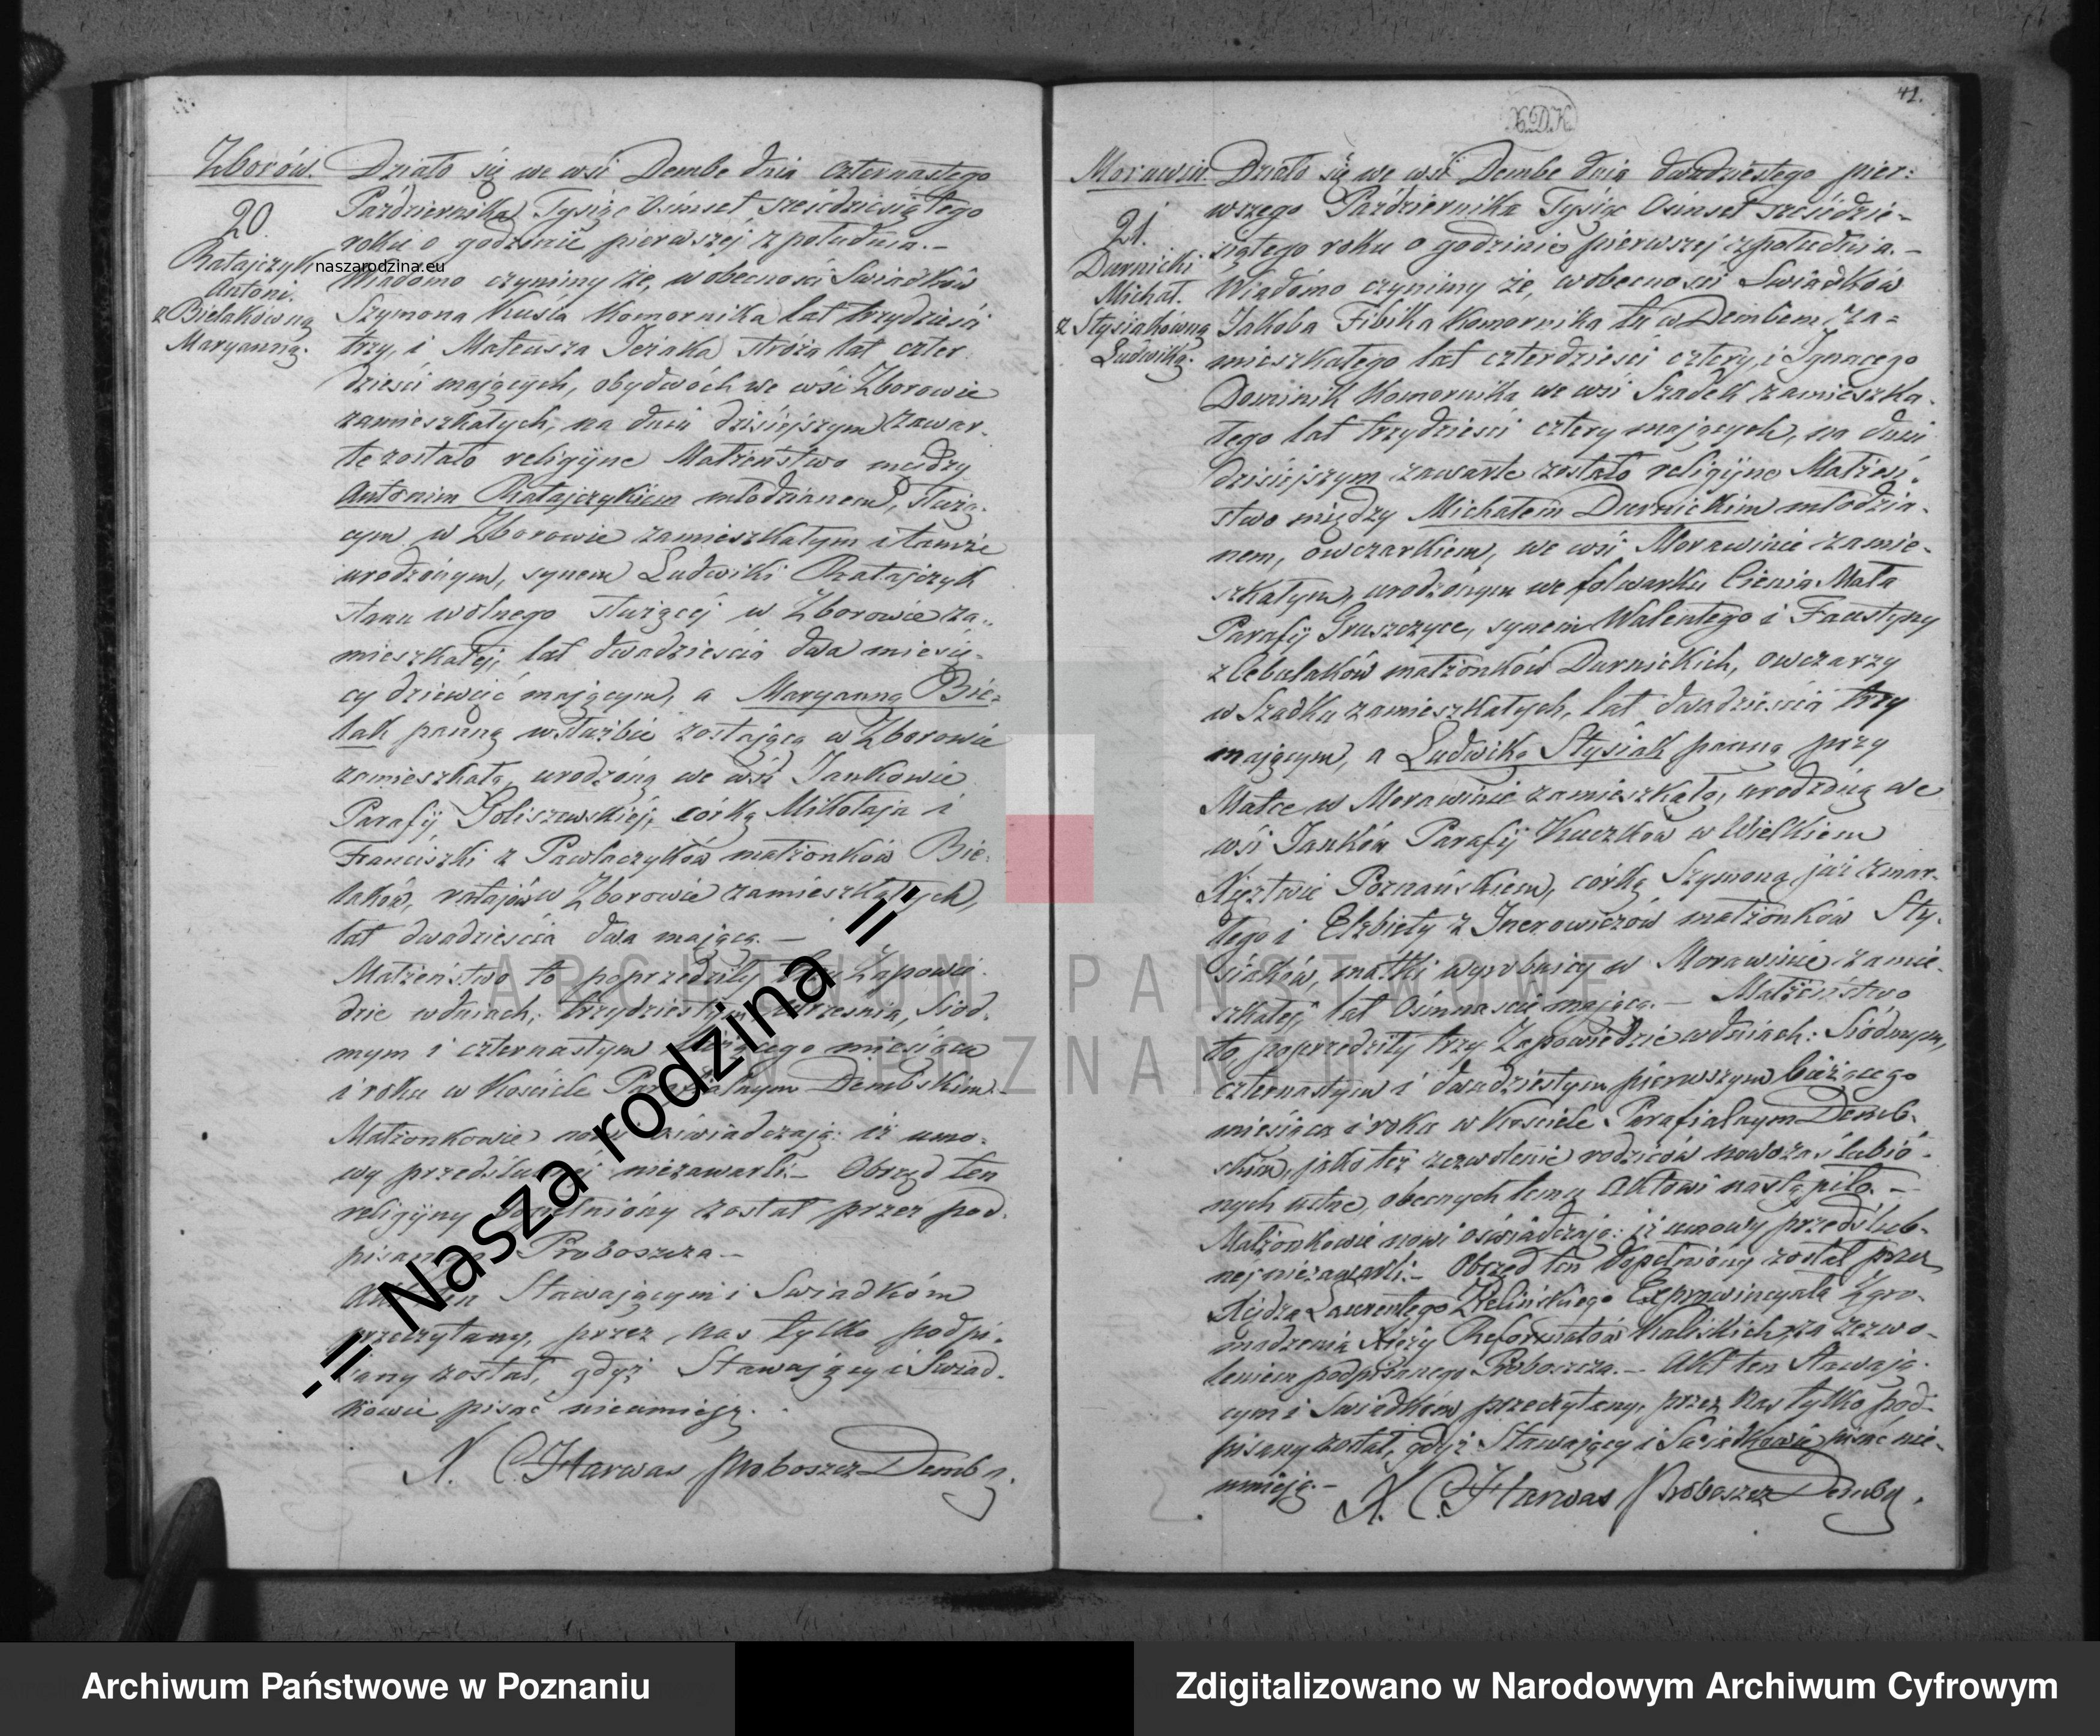 Zborów.
20
Ratajczyk
Antoni.
z Bielakówną
Maryanną.
Działo się we wsi Dembe dnia czternastego
Października Tysiąc Ośmset sześćdziesiątego
roku o godzinie pierwszej z południa. –
Wiadomo czynimy że, w obecności Świadków
Szymona Kuśla Komornika lat trzydzieści
trzy, i Mateusza Jeżaka stróża lat czter
dzieści mających, obydwóch we wsi Zborowie
zamieszkałych, na dniu dzisiejszym zawar-
te zostało religijne Małżeństwo między
Antonim Ratajczykiem młodzianem, służą-
cym w Zborowie zamieszkałym i tamże
urodzonym, synem Ludwiki Ratajczyk
stanu wolnego służącej w Zborowie za-
mieszkałej, lat dwadzieścia dwa miesię-
cy dziewięć mającym, a Maryanną Bie-
lak panną w służbie zostającą w Zborowie
zamieszkałą, urodzoną we wsi Jankowie
Parafij Goliszewskiej, córką Mikołaja i
Franciszki z Pawlaczyków małżonków Bie-
laków, ratajów w Zborowie zamieszkałych,
lat dwadzieścia dwa mającą. –
Małżeństwo to poprzedziły trzy Zapowie-
dzie w dniach, trzydziestym Września, Siód-
mym i czternastym bieżącego miesiąca
i roku w Kościele Parafialnym Dembskim.
Małżonkowie nowi oświadczają: iż umo-
wy przedślubnej niezawarli. – Obrzęd ten
religijny dopełniony został przez pod-
pisanego Proboszcza –
Akt ten Stawającym i Świadkóm
przeczytany, przez nas tylko podpi-
sany został, gdyż Stawający i Świad-
kowie pisać nieumieją.
X. C. Harwas Proboszcz Demby.
42.
X.D.K.
Morawin.
21.
Durnicki
Michał.
z Stysiakówną
Ludwiką.
Działo się we wsi Dembe dnia dwudziestego pier-
wszego Października Tysiąc Ośmset sześćdzie-
siątego roku o godzinie pierwszej z południa. –
Wiadomo czynimy że, w obecności Świadków
Jakóba Fibika Komornika tu w Dembem za-
mieszkałego lat czterdzieści cztery, i Ignacego
Dominik Komornika we wsi Szadek zamieszka-
łego lat trzydzieści cztery mających, na dniu
dzisiejszym zawarte zostało religijne Małżeń-
stwo między Michałem Durnickim młodzia-
nem, owczarkiem, we wsi Morawinie zamie-
szkałym, urodzonym we folwarku Cienia Mała
Parafij Gruszczyce, synem Walentego i Faustyny
z Cebulaków małżonków Durnickich, owczarzy
w Szadku zamieszkałych, lat dwadzieścia trzy
mającym, a Ludwiką Stysiak panną przy
Matce w Morawinie zamieszkałą, urodzoną we
wsi Janków Parafij Kuczków w Wielkiem
Xięztwie Poznańskiem, córką Szymona już zmar-
łego i Elżbiety z Incrowiczów małżonków Sty-
siaków, matki wyrobnicy w Morawinie zamie-
szkałej, lat Ośmnaście mającą. – Małżeństwo
to poprzedziły trzy Zapowiedzie w dniach: Siódmym,
czternastym i dwudziestym pierwszym bieżącego
miesiąca i roku w Kościele Parafialnym Demb-
skim, jako też zezwolenie rodziców nowozaślubio-
nych ustne, obecnych temu Aktowi nastąpiło. –
Małżonkowie nowi oświadczają: iż umowy przedślub-
nej niezawarli. – Obrzęd ten dopełniony został przez
Xiędza Laurentego Zielińskiego Exprowincyała Zgro-
madzenia Xięży Reformatów Kaliskich, za zezwo-
leniem podpisanego Proboszcza. – Akt ten Stawają-
cym i Świadkóm przeczytany, przez nas tylko pod-
pisany został, gdyż Stawający i Świadkowie pisać nie-
umieją. –
X. C. Harwas Proboszcz Demby.
naszarodzina.eu
-= Nasza rodzina =-
ARCHIWUM PAŃSTWOWE
W POZNANIU
Archiwum Państwowe w Poznaniu
Zdigitalizowano w Narodowym Archiwum Cyfrowym